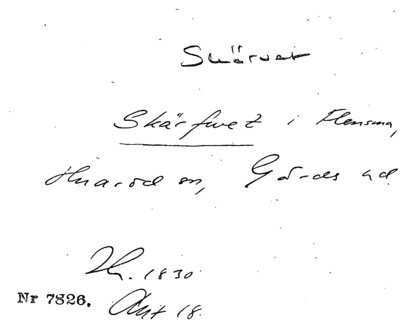 Skärvet
Skärfwet i Flensma,
Huaröd sn, Gärds hd.
Lh. 1830.
Nr 7826. Akt 18.